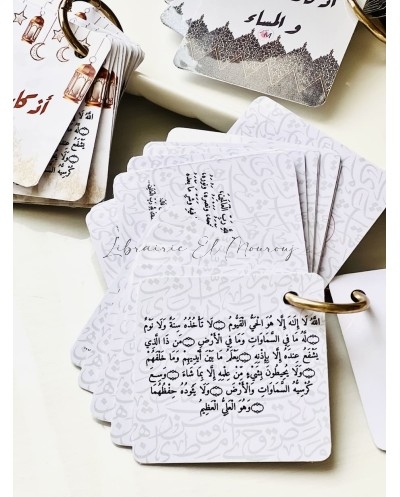 و المساء
أذكا
Librairie El Mourouj
اللهُ لَا إِلَهَ إِلَّا هُوَ الْحَيُّ الْقَيُّومُ ۝ لَا تَأْخُذُهُ سِنَةٌ وَلَا نَوْمٌ
۝ لَهُ مَا فِي السَّمَاوَاتِ وَمَا فِي الْأَرْضِ ۝ مَن ذَا الَّذِي
يَشْفَعُ عِنْدَهُ إِلَّا بِإِذْنِهِ ۝ يَعْلَمُ مَا بَيْنَ أَيْدِيهِمْ وَمَا خَلْفَهُمْ
۝ وَلَا يُحِيطُونَ بِشَيْءٍ مِّنْ عِلْمِهِ إِلَّا بِمَا شَاءَ ۝ وَسِعَ
كُرْسِيُّهُ السَّمَاوَاتِ وَالْأَرْضَ ۝ وَلَا يَئُودُهُ حِفْظُهُمَا
۝ وَهُوَ الْعَلِيُّ الْعَظِيمُ